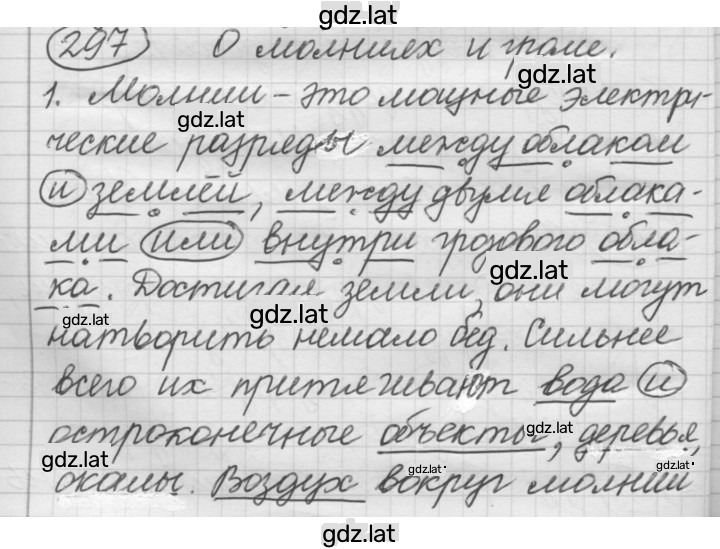 gdz.lat
297 О молниях и громе.
gdz.lat
1. Молнии – это мощные электри-
gdz.lat
ческие разряды между облаком
и землёй, между двумя облака-
ми или внутри грозового обла-
gdz.lat
ка. Достигая земли, они могут
gdz.lat gdz.lat
натворить немало бед. Сильнее
всего их притягивают вода и
остроконечные объекты, деревья,
gdz.lat
gdz.lat gdz.lat gdz.lat
скалы. Воздух вокруг молнии
gdz.lat